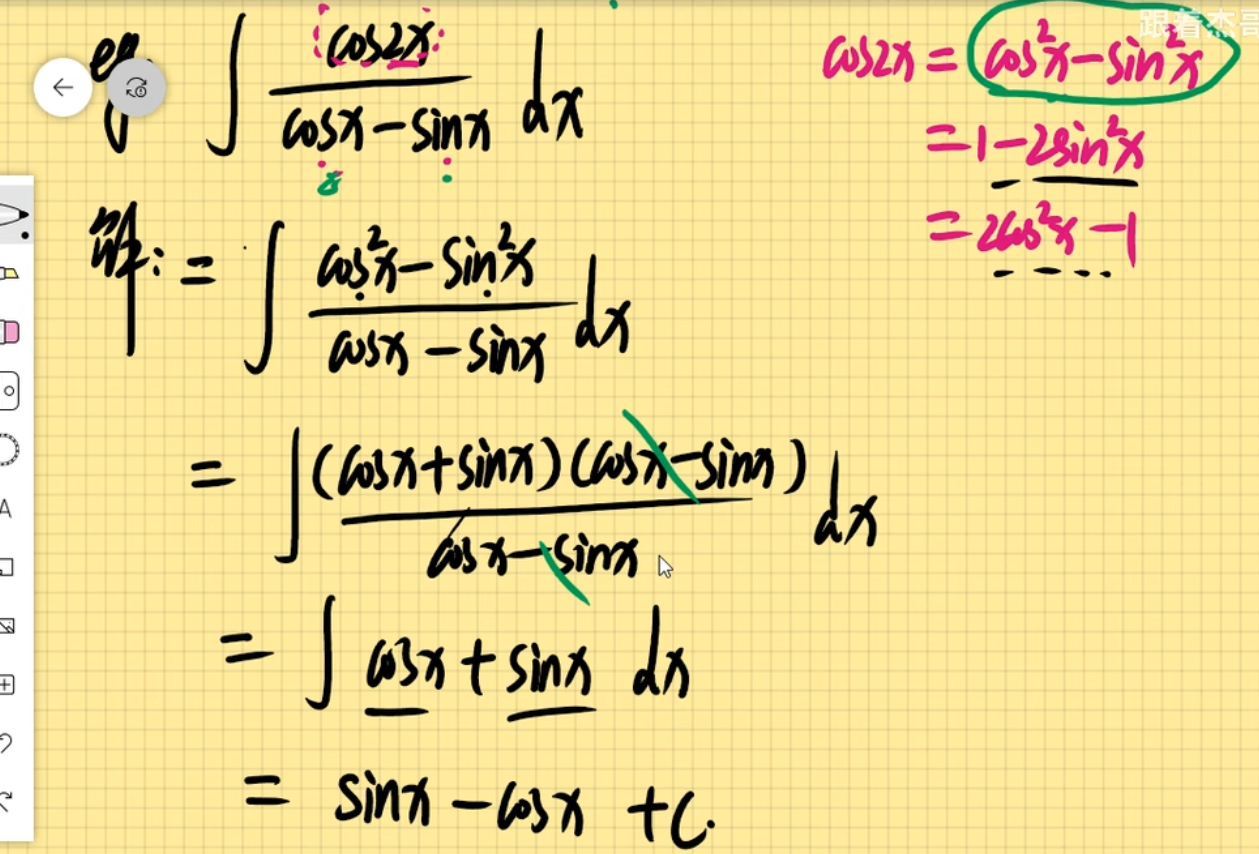 跟着杰哥
eg ∫ cos2x / (cosx − sinx) dx
cos2x = cos²x − sin²x
= 1 − 2sin²x
= 2cos²x − 1
解: = ∫ (cos²x − sin²x) / (cosx − sinx) dx
= ∫ (cosx + sinx)(cosx − sinx) / (cosx − sinx) dx
= ∫ cosx + sinx dx
= sinx − cosx + C.